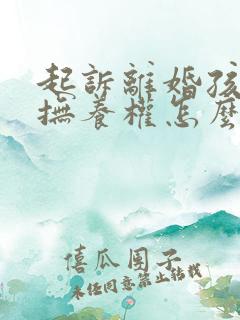 起訴離婚孩
撫養權怎麼
僖瓜團子
未经同意禁止转载